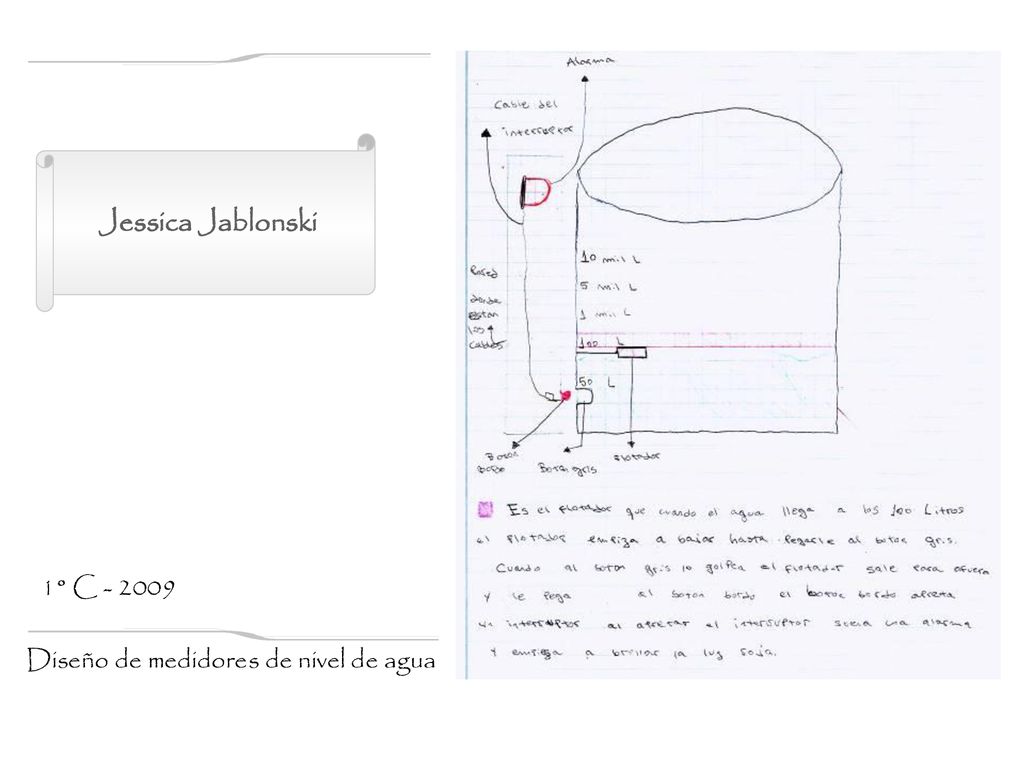 Jessica Jablonski
1º C - 2009
Diseño de medidores de nivel de agua
Alarma
Cable del
interruptor
Pared
donde
estan
los
cables
10 mil L
5 mil L
1 mil L
100 L
50 L
Boton
bordo
Boton gris
Flotador
Es el flotador que cuando el agua llega a los 100 Litros
el flotador empieza a bajar hasta pegarle al boton gris.
Cuando al boton gris lo golpea el flotador sale para afuera
y le pega al boton bordo el boton bordo apreta
un interruptor al apretar el interruptor suena una alarma
y empieza a brillar la luz roja.